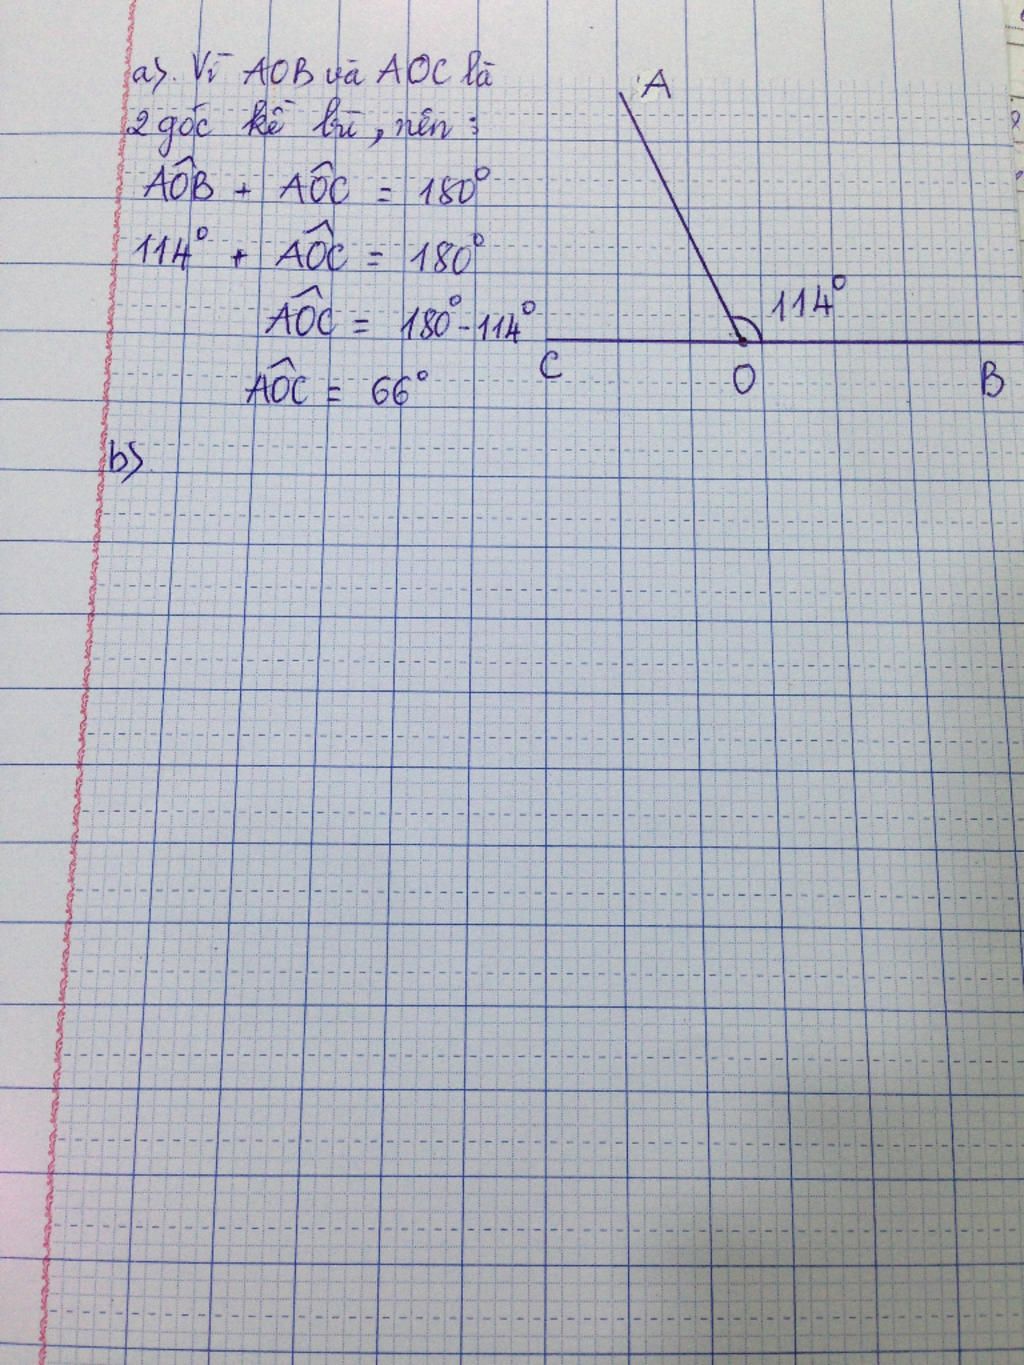 a). Vì AOB và AOC là
2 góc kề bù, nên :
AÔB + AÔC = 180°
114° + AÔC = 180°
AÔC = 180° - 114°
AÔC = 66°
b).
A
114°
C
O
B